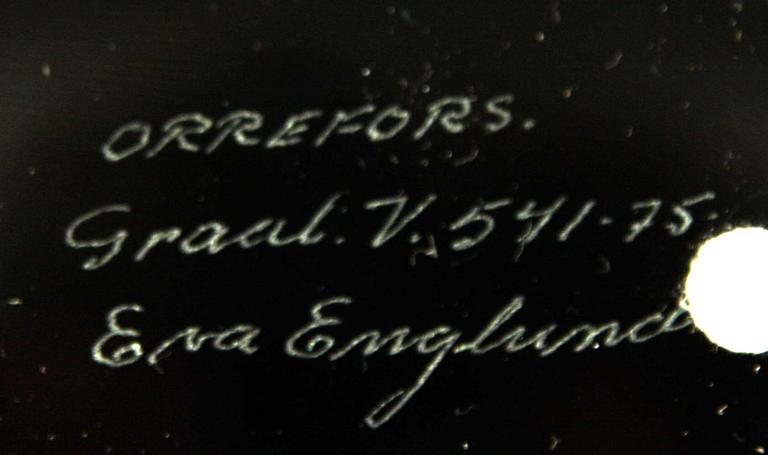 ORREFORS.
Graal. V. 541-75.
Eva Englund